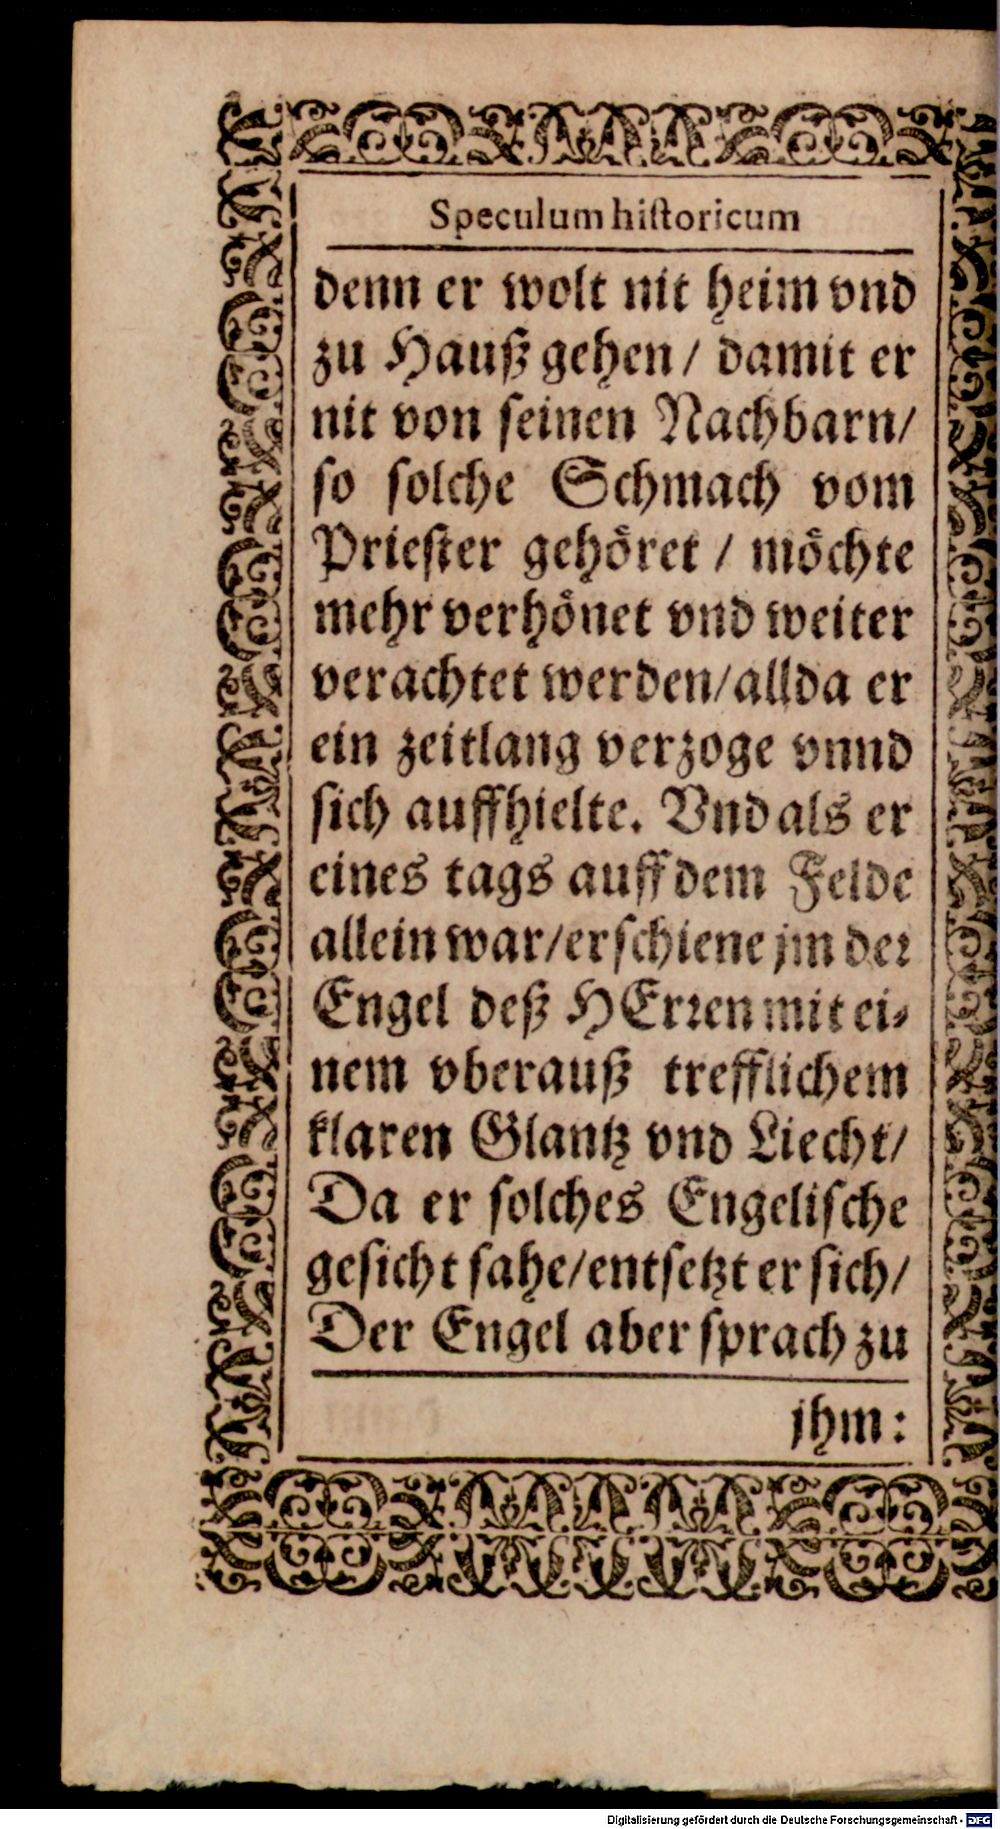 Speculum hiſtoricum
denn er wolt nit heim vnd
zu Hauß gehen / damit er
nit von ſeinen Nachbarn/
ſo ſolche Schmach vom
Prieſter gehöret / möchte
mehr verhönet vnd weiter
verachtet werden/allda er
ein zeitlang verzoge vnnd
ſich auffhielte. Vnd als er
eines tags auff dem Felde
allein war/erſchiene jm der
Engel deß HErren mit ei-
nem vberauß trefflichem
klaren Glantz vnd Liecht/
Da er ſolches Engeliſche
geſicht ſahe/entſetzt er ſich/
Der Engel aber ſprach zu
jhm:
Digitalisierung gefördert durch die Deutsche Forschungsgemeinschaft - DFG